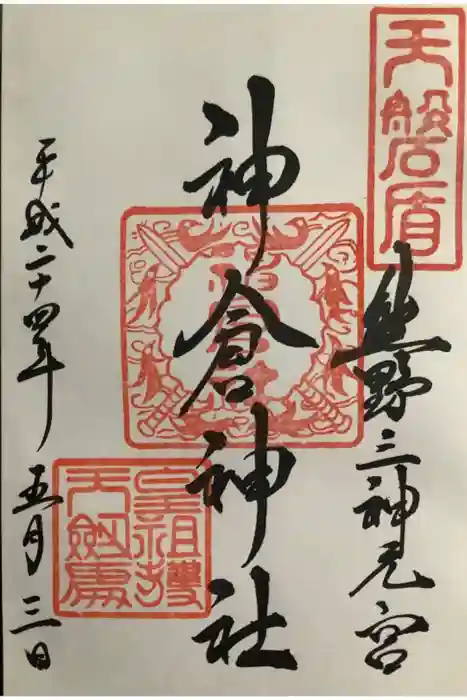 天磐盾
熊野三神元宮
神倉神社
皇祖護
天劔處
平成二十四年 五月 三日